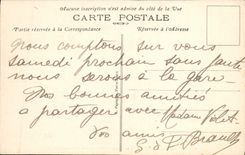 Aucune inscription n'est admise du côté de la Vue
CARTE POSTALE
Partie réservée à la Correspondance
Réservée à l'Adresse
Nous comptons sur vous
samedi prochain sans faute
nous serons à la gare
Nos bonnes amitiés
à partager avec Madame
Vos amis